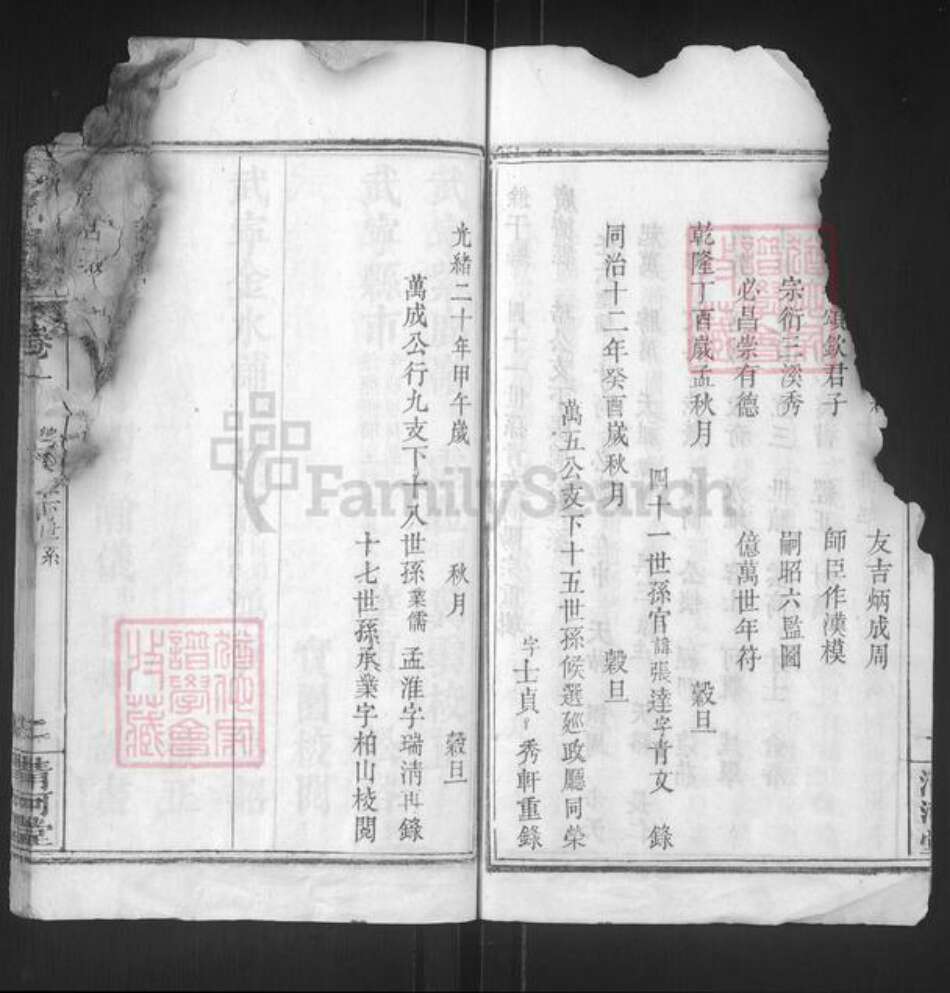 友吉炳成周
欽君子
師臣作漢模
宗衍三溪秀
嗣昭六監圖
必昌崇有德
億萬世年符
乾隆丁酉歲孟秋月 穀旦
四十一世孫官諱張達字青文 錄
同治十二年癸酉歲秋月 穀旦
萬五公支下十五世孫候選廵政廳同榮
字士貞号秀軒重錄
光緒二十年甲午歲 秋月 穀旦
萬成公行九支下十八世孫業儒孟淮字瑞清再錄
十七世孫承業字柏山校閲
卷一
世系
二
清河堂
FamilySearch